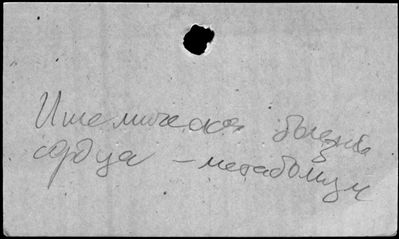 Ишемическая болезнь
сердца - метаболизм